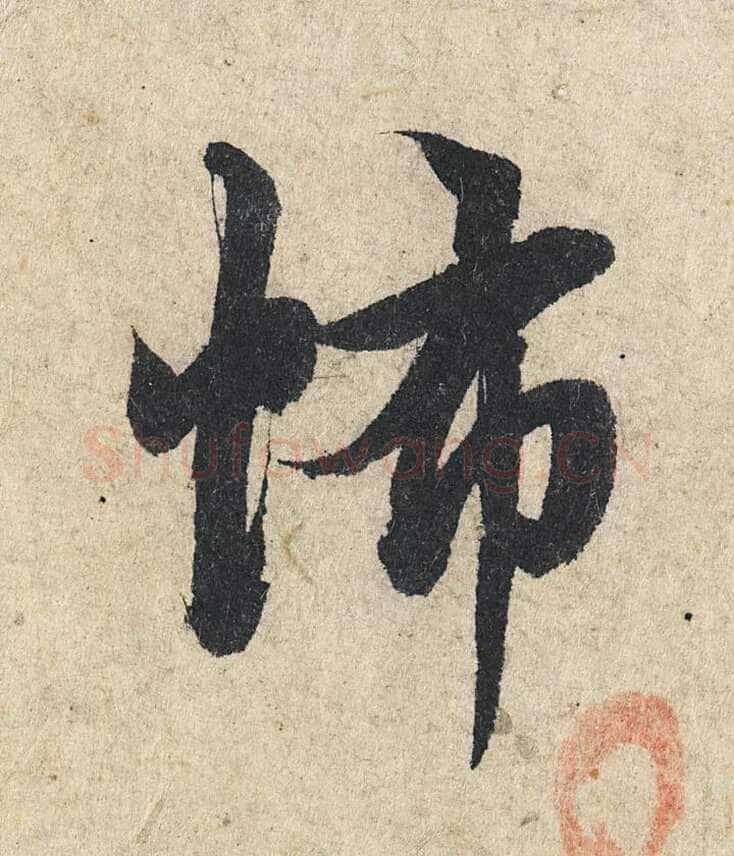 怖
Shufawang.CN